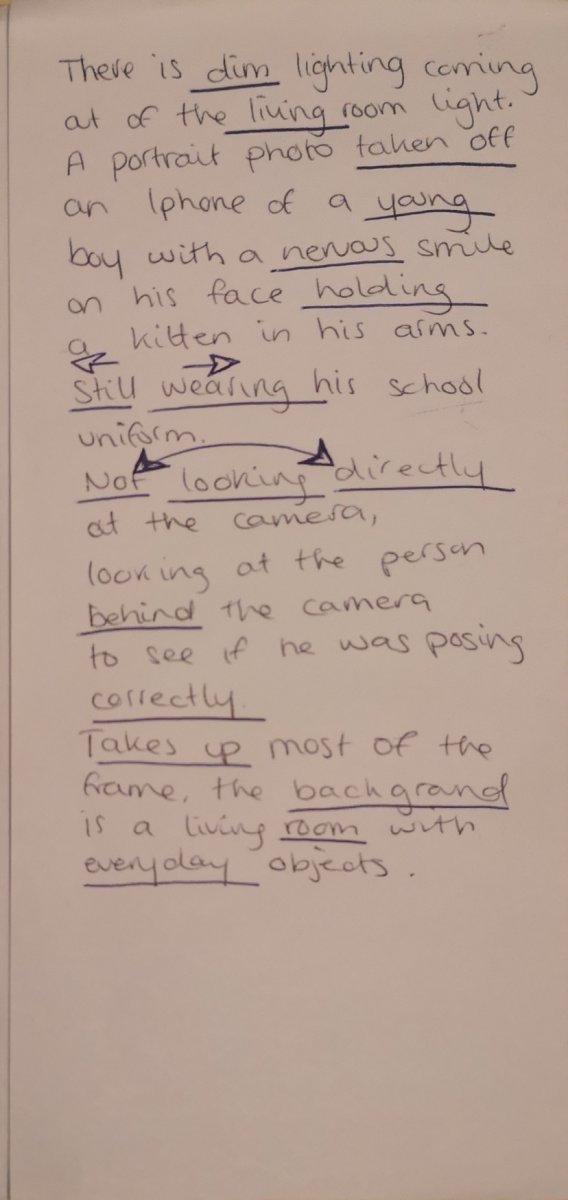 There is dim lighting coming
out of the living room light.
A portrait photo taken off
an Iphone of a young
boy with a nervous smile
on his face holding
a kitten in his arms.
Still wearing his school
uniform.
Not looking directly
at the camera,
looking at the person
behind the camera
to see if he was posing
correctly.
Takes up most of the
frame, the background
is a living room with
everyday objects.